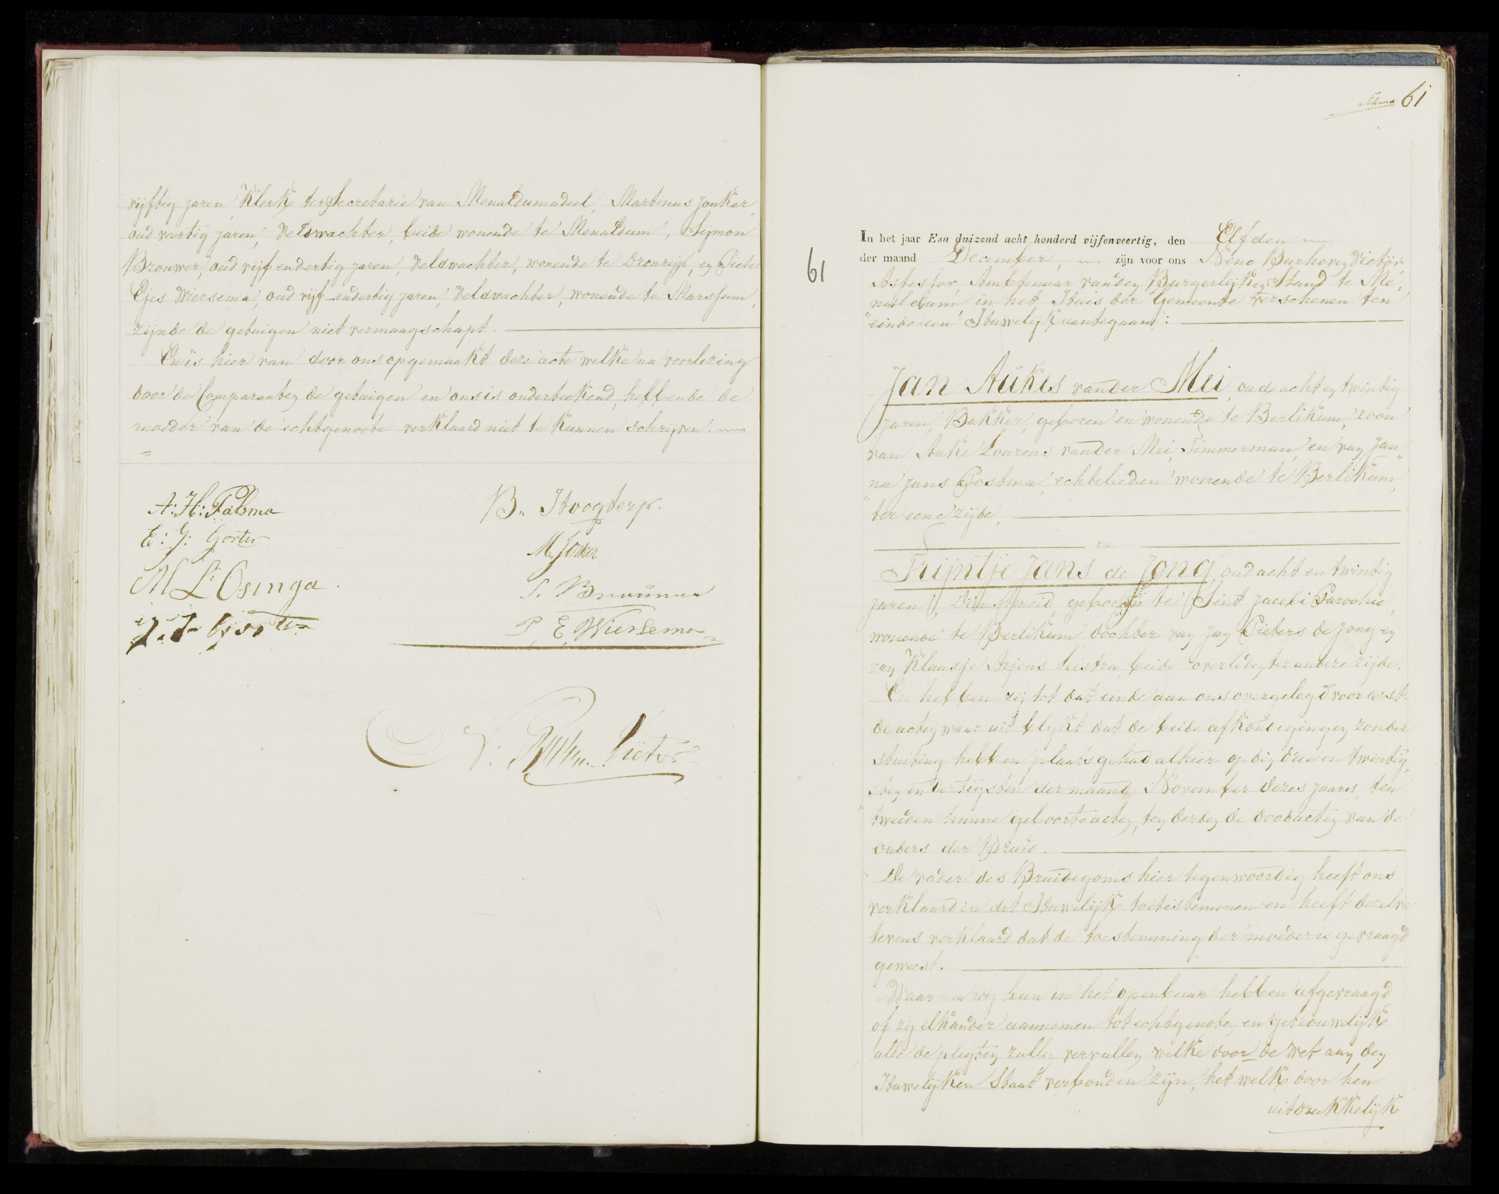 vijftig jaren Klerk ter Secretarie van Menaldumadeel, Martinus Jonker,
oud veertig jaren, Veldwachter, beide wonende te Menaldum, Symon
Brouwer, oud vijf en dertig jaren, Veldwachter, wonende te Dronrijp, en Pieter
Epes Wiersema, oud vijf endertig jaren, Veldwachter, wonende te Marssum,
zijnde de getuigen niet vermaagschapt.
En is hier van door ons opgemaakt deze acte welke na voorlezing
door de Comparanten, de getuigen en ons is onderteekend, hebbende de
moeder van de echtgenoote verklaard niet te kunnen schrijven.
A: H: Palsma
B. Hoogterp.
E: J: Gorter
M Jonker
M L Osinga.
S. Brouwer
P E Wiersema
61
61
In het jaar Een duizend acht honderd vijfenveertig, den Elfden
der maand December, zijn voor ons
Ambtenaar van den Burgerlijken Stand te Me-
naldum, in het Huis der Gemeente verschenen ten
einde een Huwelijk aantegaan:
Jan Aukes van der Mei, oud acht en twintig
jaren, Bakker, geboren en wonende te Berlikum, zoon
van Auke Lourens van der Mei, Timmerman, en van Jan-
na Jans Postma, echtelieden wonende te Berlikum,
ter eene zijde,
en
Trijntje Jans de Jong, oud acht en twintig
jaren, Dienstmeid, geboren te Sint Jacobi Parochie,
wonende te Berlikum dochter van Jan Pieters de Jong en
van Klaaske Arjens beide overleden, ter andere zijde.
En hebben zij tot dat einde aan ons overgelegd vooreerst
de acten waar uit blijkt dat de beide afkondigingen zonder
stuiting hebben plaats gehad alhier op den drie en twintig,
sten en dertigsten der maand November dezes jaars, ten
tweeden hunne geboorteacten, ten derden de doodacten van de
ouders der Bruid.
De vader des Bruidegoms hier tegenwoordig heeft ons
verklaard in dit Huwelijk toetestemmen en heeft
tevens verklaard dat de toestemming der moeder is gevraagd
geweest.
Waar na wij hun in het openbaar hebben afgevraagd
of zij elkander aannemen tot echtgenoten, en getrouwelijk
alle de plegten zullen vervullen welke door de Wet aan den
Huwelijken Staat verbonden zijn, het welk door hen
uitdrukkelijk